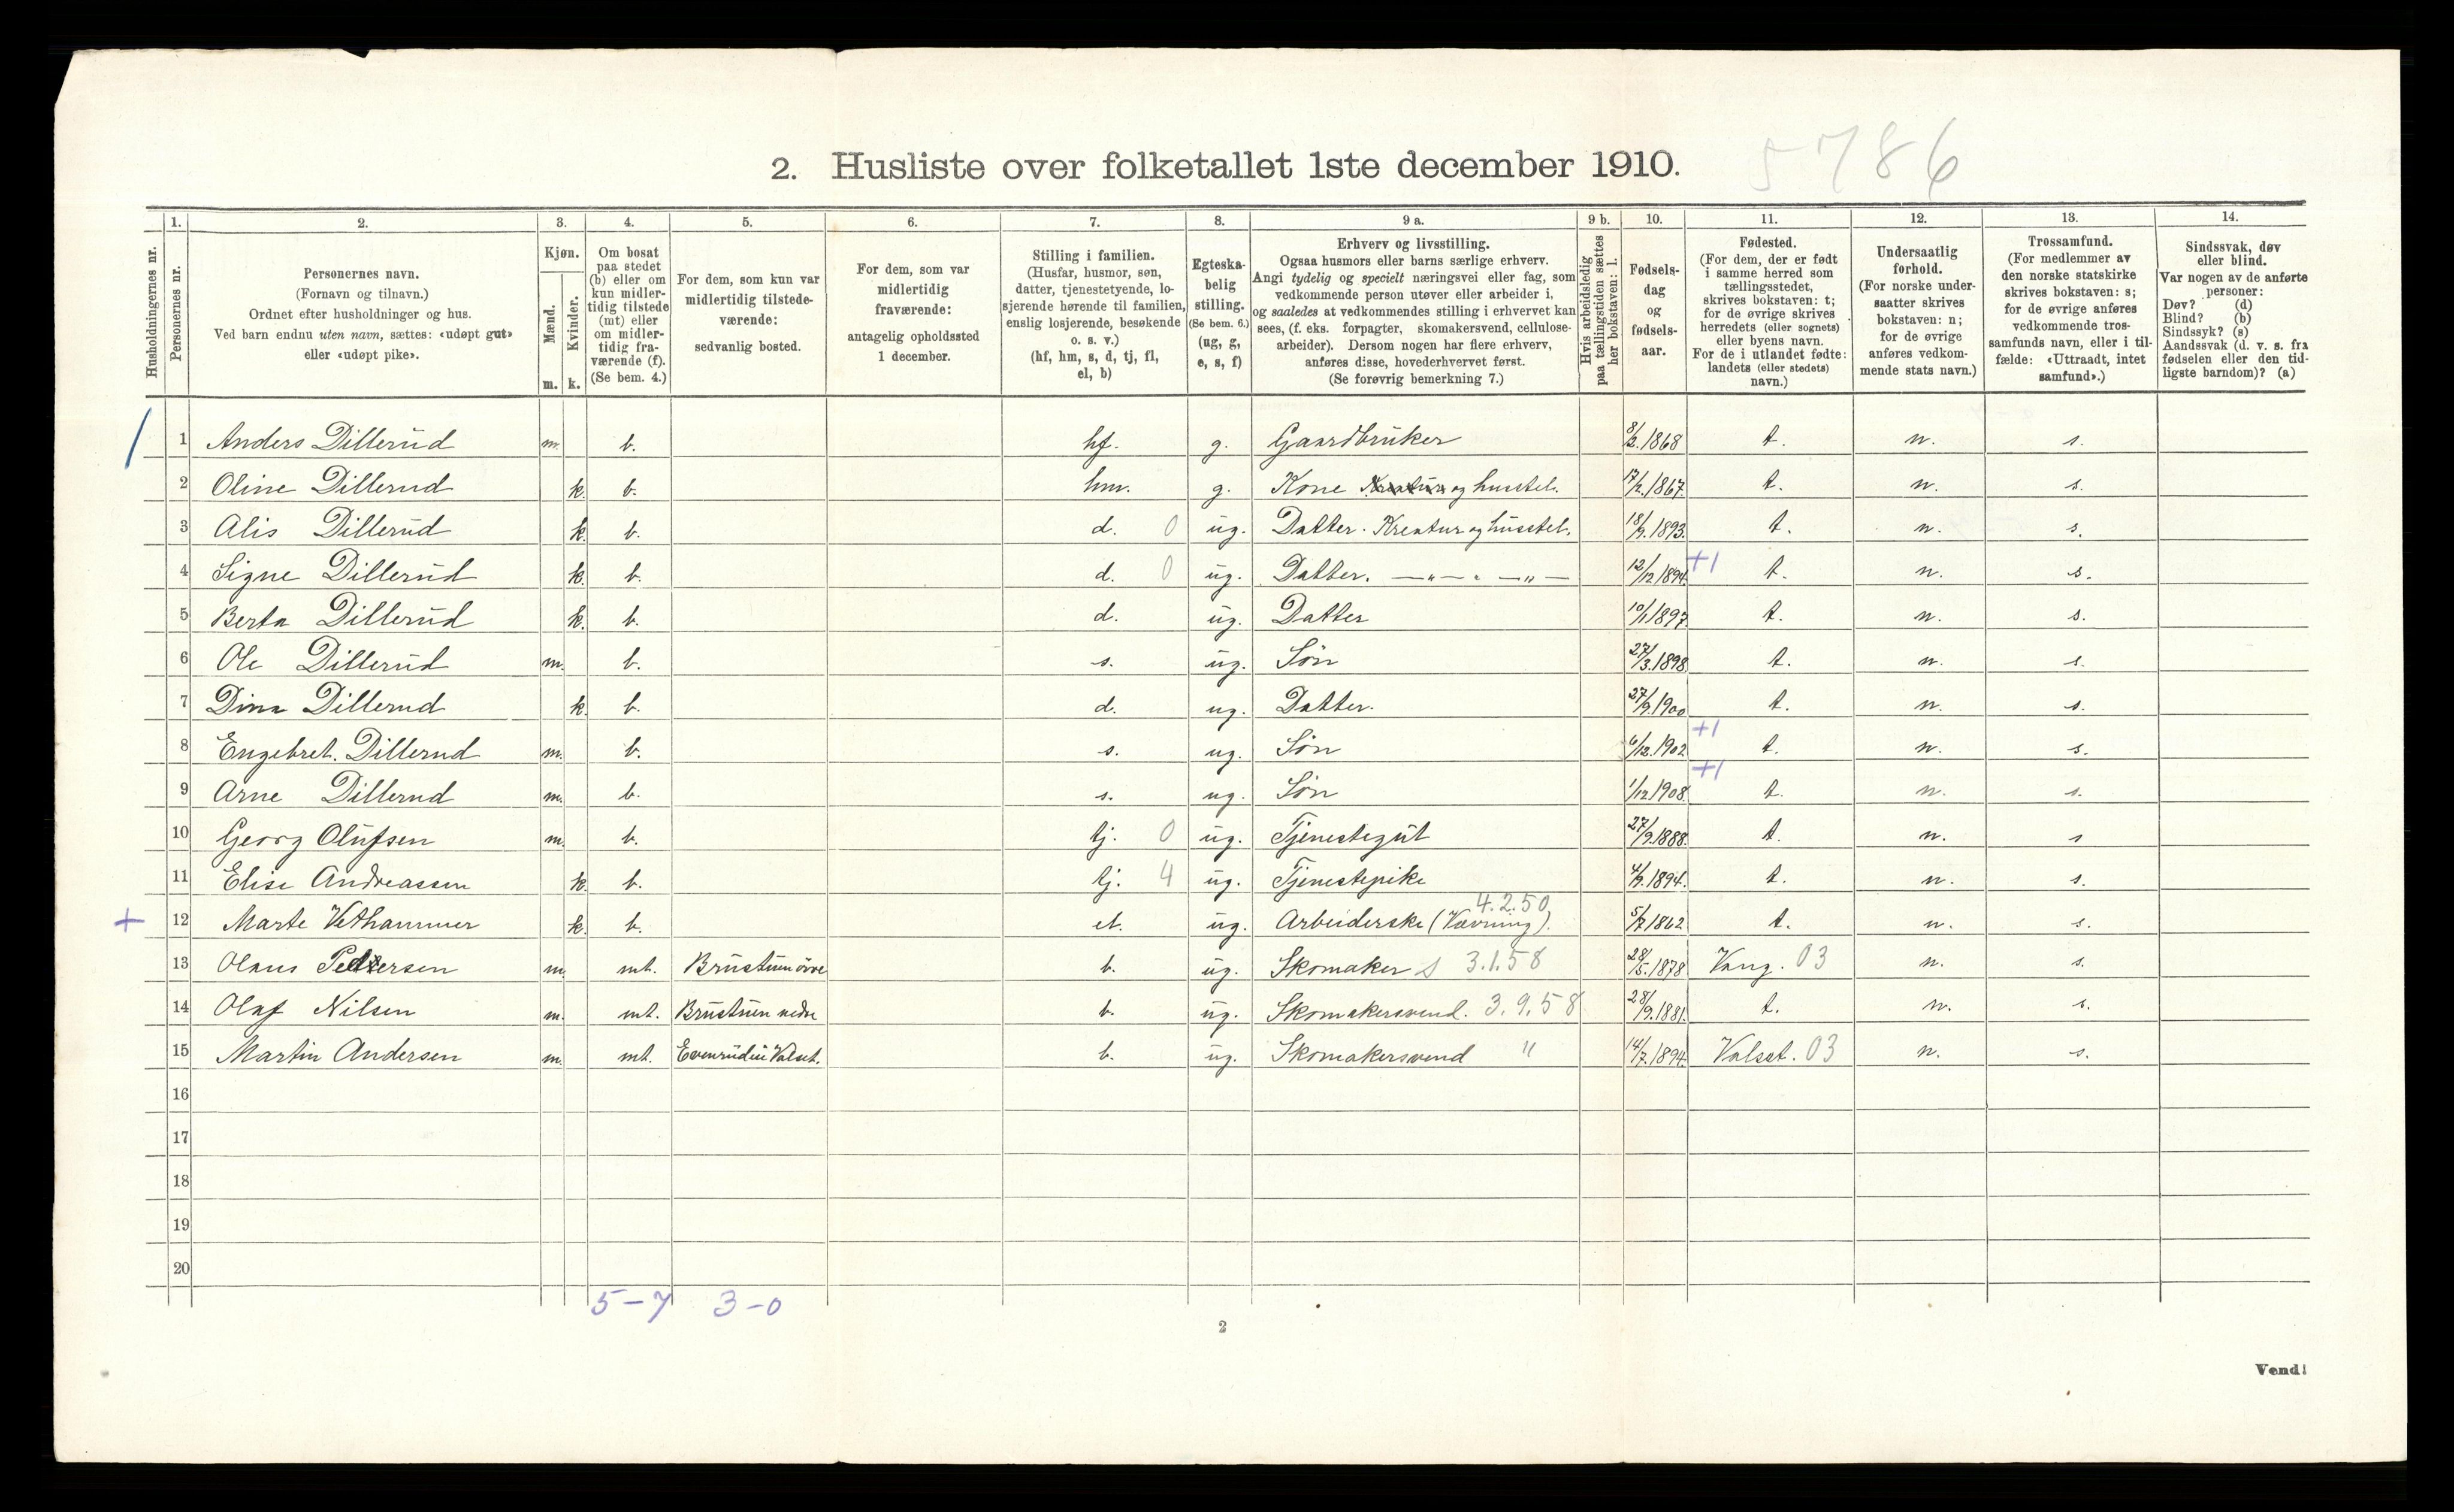 5786
2. Husliste over folketallet 1ste december 1910.
1. 2. 3. 4. 5. 6. 7. 8. 9 a. 9 b. 10. 11. 12. 13. 14.
Husholdningernes nr.
Personernes nr.
Personernes navn.
(Fornavn og tilnavn.)
Ordnet efter husholdninger og hus.
Ved barn endnu uten navn, sættes: «udøpt gut»
eller «udøpt pike».
Kjøn.
Mænd.
Kvinder.
m. k.
Om bosat
paa stedet
(b) eller om
kun midler-
tidig tilstede
(mt) eller
om midler-
tidig fra-
værende (f).
(Se bem. 4.)
For dem, som kun var
midlertidig tilstede-
værende:
sedvanlig bosted.
For dem, som var
midlertidig
fraværende:
antagelig opholdssted
1 december.
Stilling i familien.
(Husfar, husmor, søn,
datter, tjenestetyende, lo-
sjerende hørende til familien,
enslig losjerende, besøkende
o. s. v.)
(hf, hm, s, d, tj, fl,
el, b)
Egteska-
belig
stilling.
(Se bem. 6.)
(ug, g,
e, s, f)
Erhverv og livsstilling.
Ogsaa husmors eller barns særlige erhverv.
Angi tydelig og specielt næringsvei eller fag, som
vedkommende person utøver eller arbeider i,
og saaledes at vedkommendes stilling i erhvervet kan
sees, (f. eks. forpagter, skomakersvend, cellulose-
arbeider). Dersom nogen har flere erhverv,
anføres disse, hovederhvervet først.
(Se forøvrig bemerkning 7.)
Hvis arbeidsledig
paa tællingstiden sættes
her bokstaven: l.
Fødsels-
dag
og
fødsels-
aar.
Fødested.
(For dem, der er født
i samme herred som
tællingsstedet,
skrives bokstaven: t;
for de øvrige skrives
herredets (eller sognets)
eller byens navn.
For de i utlandet fødte:
landets (eller stedets)
navn.)
Undersaatlig
forhold.
(For norske under-
saatter skrives
bokstaven: n;
for de øvrige
anføres vedkom-
mende stats navn.)
Trossamfund.
(For medlemmer av
den norske statskirke
skrives bokstaven: s;
for de øvrige anføres
vedkommende tros-
samfunds navn, eller i til-
fælde: «Uttraadt, intet
samfund».)
Sindssvak, døv
eller blind.
Var nogen av de anførte
personer:
Døv? (d)
Blind? (b)
Sindssyk? (s)
Aandssvak (d. v. s. fra
fødselen eller den tid-
ligste barndom)? (a)
1 Anders Dillerud m. b. hf. g. Gaardbruker 8/2.1868 t. n. s.
2 Oline Dillerud k. b. hm. g. Kone Kreatur og husstel. 17/2.1867. t. n. s.
3 Alis Dillerud k. b. d. 0 ug. Datter. Kreatur og husstel. 18/9.1893. t. n. s.
4 Signe Dillerud k. b. d. 0 ug. Datter. —„— „ —„— 12/12 1894. +1 t. n. s.
5 Berta Dillerud k. b. d. ug. Datter 10/1 1897. t. n. s.
6 Ole Dillerud m. b. s. ug. Søn 27/3.1898. t. n. s.
7 Dina Dillerud k. b. d. ug. Datter. 27/9.1900 t. n. s.
8 Engebret. Dillerud m. b. s. ug. Søn 6/12.1902 +1 t. n. s.
9 Arne Dillerud m. b. s. ug. Søn 1/12.1908. +1 t. n. s.
10 Georg Olufsen m. b. tj. 0 ug. Tjenestegut 27/9.1888. t. n. s
11 Elise Andreassen k. b. tj. 4 ug. Tjenestepike 4/9.1894. t. n. s.
+ 12 Marte Vethammer k. b. el. ug. Arbeiderske (Vævning). 4.2.50 5/7 1862 t. n. s.
13 Olaus Pettersen m. mt. Brustuen øvre b. ug. Skomaker s 3.1.58 28/5.1878 Vang. 03 n. s.
14 Olaf Nilsen m. mt. Brustuen nedre b. ug. Skomakersvend. 3.9.58 28/9.1881. t. n. s.
15 Martin Andersen m. mt. Evenrud i Valset. b. ug. Skomakersvend " 14/7.1894. Valset. 03 n. s.
16
17
18
19
20
5-7 3-0
2
Vend!